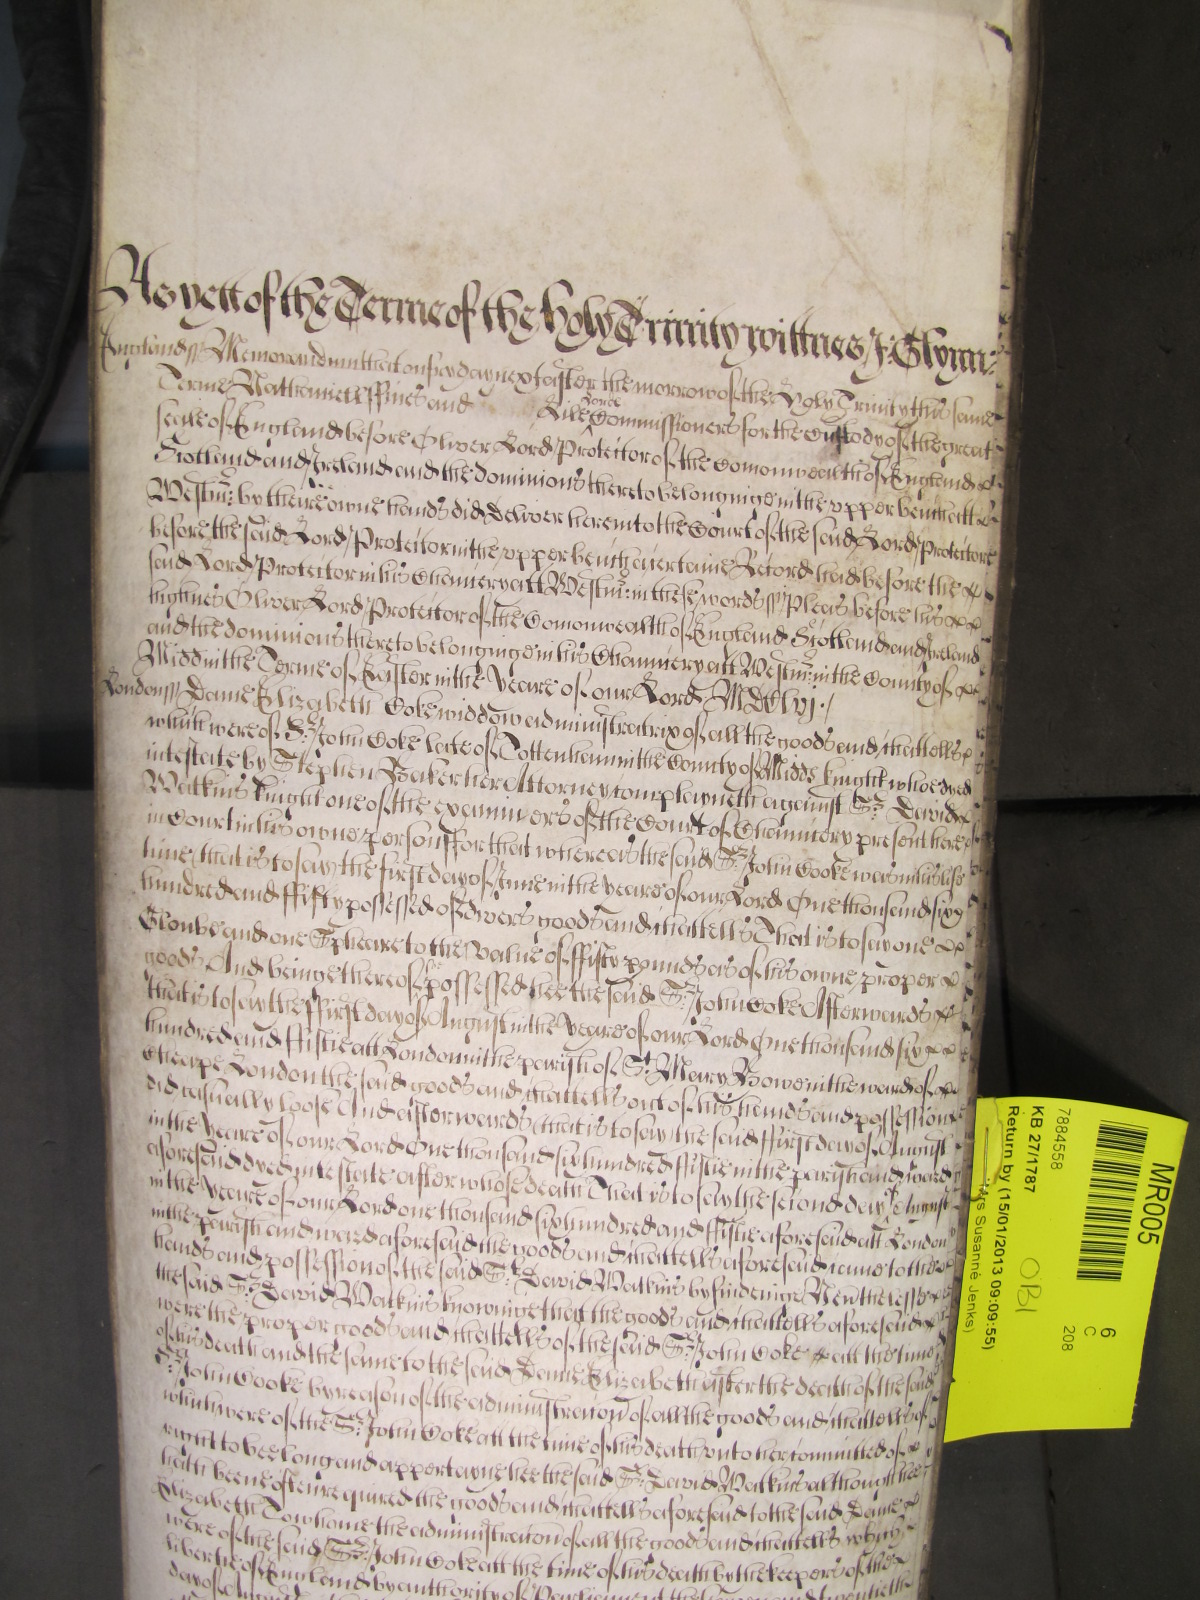 As yett of the Terme of the holy Trinity wittnes J: Glynn
England ss Memorandum that on fryday next after the morrow of the Holy Trinity this same
Terme Nathaniell Ffines and Lisle Lords Commissioners for the Custody of the great
seale of England before Oliver Lord Protector of the Comonwealth of England
Scotland and Ireland and the dominions thereto belonginge in the upper bench att
Westmr: by theire owne hands did deliver here into the Court of the said Lord Protector
before the said Lord Protector in the upper bench a certaine Record had before the
said Lord Protector in his Chancery att Westmr: in these words ss Pleas before his
highnes Oliver Lord Protector of the Comonwealth of England Scotland and Ireland
and the dominions thereto belonginge in his Chancery att Westmr: in the County of
Midd in the Terme of Easter in the yeare of our Lord MDClvj./
London ss Dame Elizabeth Coke widdow administratrix of all the goods and chattells
which were of Sr. John Coke late of Tottenham in the County of Midds knight who dyed
intestate by Stephen Baker her Attorney complayneth against Sr. David
Watkins knight one of the examiners of the Court of Chauncery present here
in Court in his owne person ffor that whereas the said Sr. John Cooke was in his life
time, that is to say the first day of June in the yeare of our Lord One thousand six
hundred and ffifty possessed of divers goods and chattells That is to say one
Cloake and one to the value of ffifty pounds as of his owne proper
goods And beinge thereof soe possessed hee the said Sr. John Coke Afterwards
that is to say the ffirst day of August in the yeare of our Lord One thousand six
hundred and ffiftie att London in the parish of St. Mary Bowe in the ward of
Cheape London the said goods and chattells out of his hands and possession
did casually loose And afterwards that is to say the said ffirst day of August
in the yeare of our Lord One thousand six hundred ffiftie in the parish and ward
aforesaid dyed intestate after whose death That is to say the second day of August
in the yeare of our Lord one thousand six hundred and ffiftie aforesaid att London
in the parish and ward aforesaid the goods and chattells aforesaid came to the
hands and possession of the said Sr. David Watkins by findeinge Neverthelesse
the said Sr. David Watkins knowinge that the goods and chattells aforesaid
were the proper goods and chattells of the said Sr. John Coke att the time
of his death and the same to the said Dame Elizabeth after the death of the said
Sr. John Cooke by reason of the administration of all the goods and chattells
which were of the Sr. John Coke att the time of his death unto her committed of
right to bee long and appertayne hee the said Sr. David Watkins although hee
hath beene often required the goods and chattells aforesaid to the said Dame
Elizabeth To whome the administration of all the goods and chattells which
were of the said Sr. John Coke att the time of his death by the keepers of the
libertie of England by authority of Parliament the
day of
MR005
6
C
208
7884558
KB 27/1787
OBI
Return by (15/01/2013 09:09:55)
Mrs Susanne Jenks)